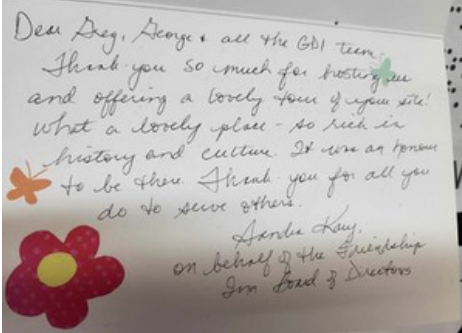 Dear Greg, George & all the GDI team,
Thank you so much for hosting us
and offering a lovely tour of your site!
What a lovely place - so rich in
history and culture. It was an honour
to be there. Thank you for all you
do to serve others.
on behalf of the Friendship
Inn Board of Directors